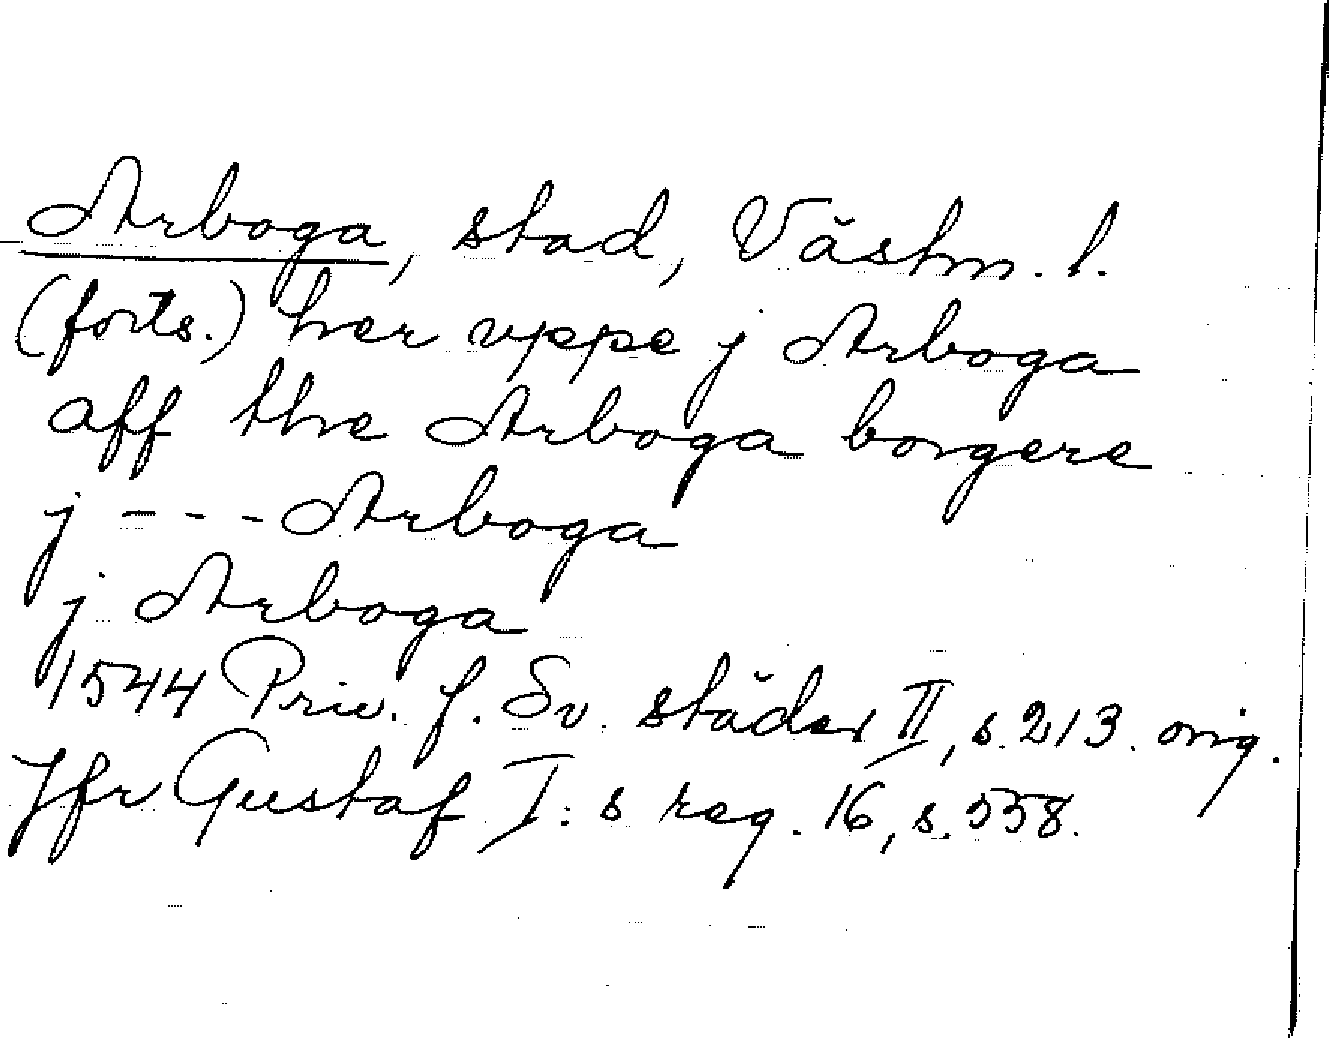 Arboga, stad, Västm. l.
(forts.) her vppe j Arboga
aff the Arboga borgere
j - - - Arboga
j Arboga
1544 Priv. f. Sv. städer II, s. 213. orig.
Jfr Gustaf I:s reg. 16, s. 558.